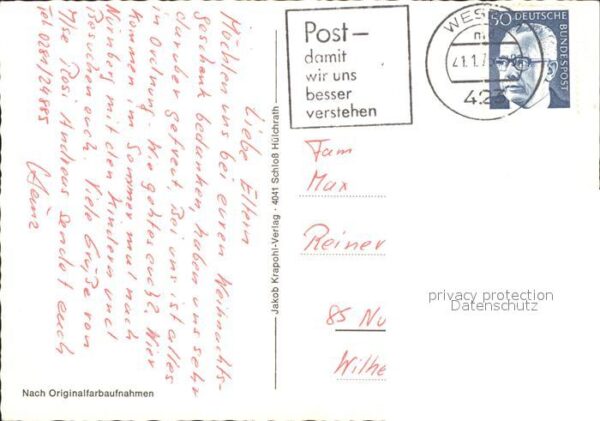 Liebe Eltern
Möchten uns bei euren Weihnachts-
geschenk bedanken, haben uns sehr
darüber gefreut. Bei uns ist alles
in Ordnung. Wie geht es euch? Wir
kommen im Sommer mal nach
Nürnberg mit den Kindern und
Besuchen euch. Viele Grüße von
Ilse Rosi Andreas sendet euch
Tel 0281/24885 Heinz
Nach Originalfarbaufnahmen
Jakob Krapohl-Verlag · 4041 Schloß Hülchrath
Post—
damit
wir uns
besser
verstehen
WES
423
50 DEUTSCHE
BUNDESPOST
Fam
Max
Reiner
85 Nu
Wilhe
privacy protection
Datenschutz